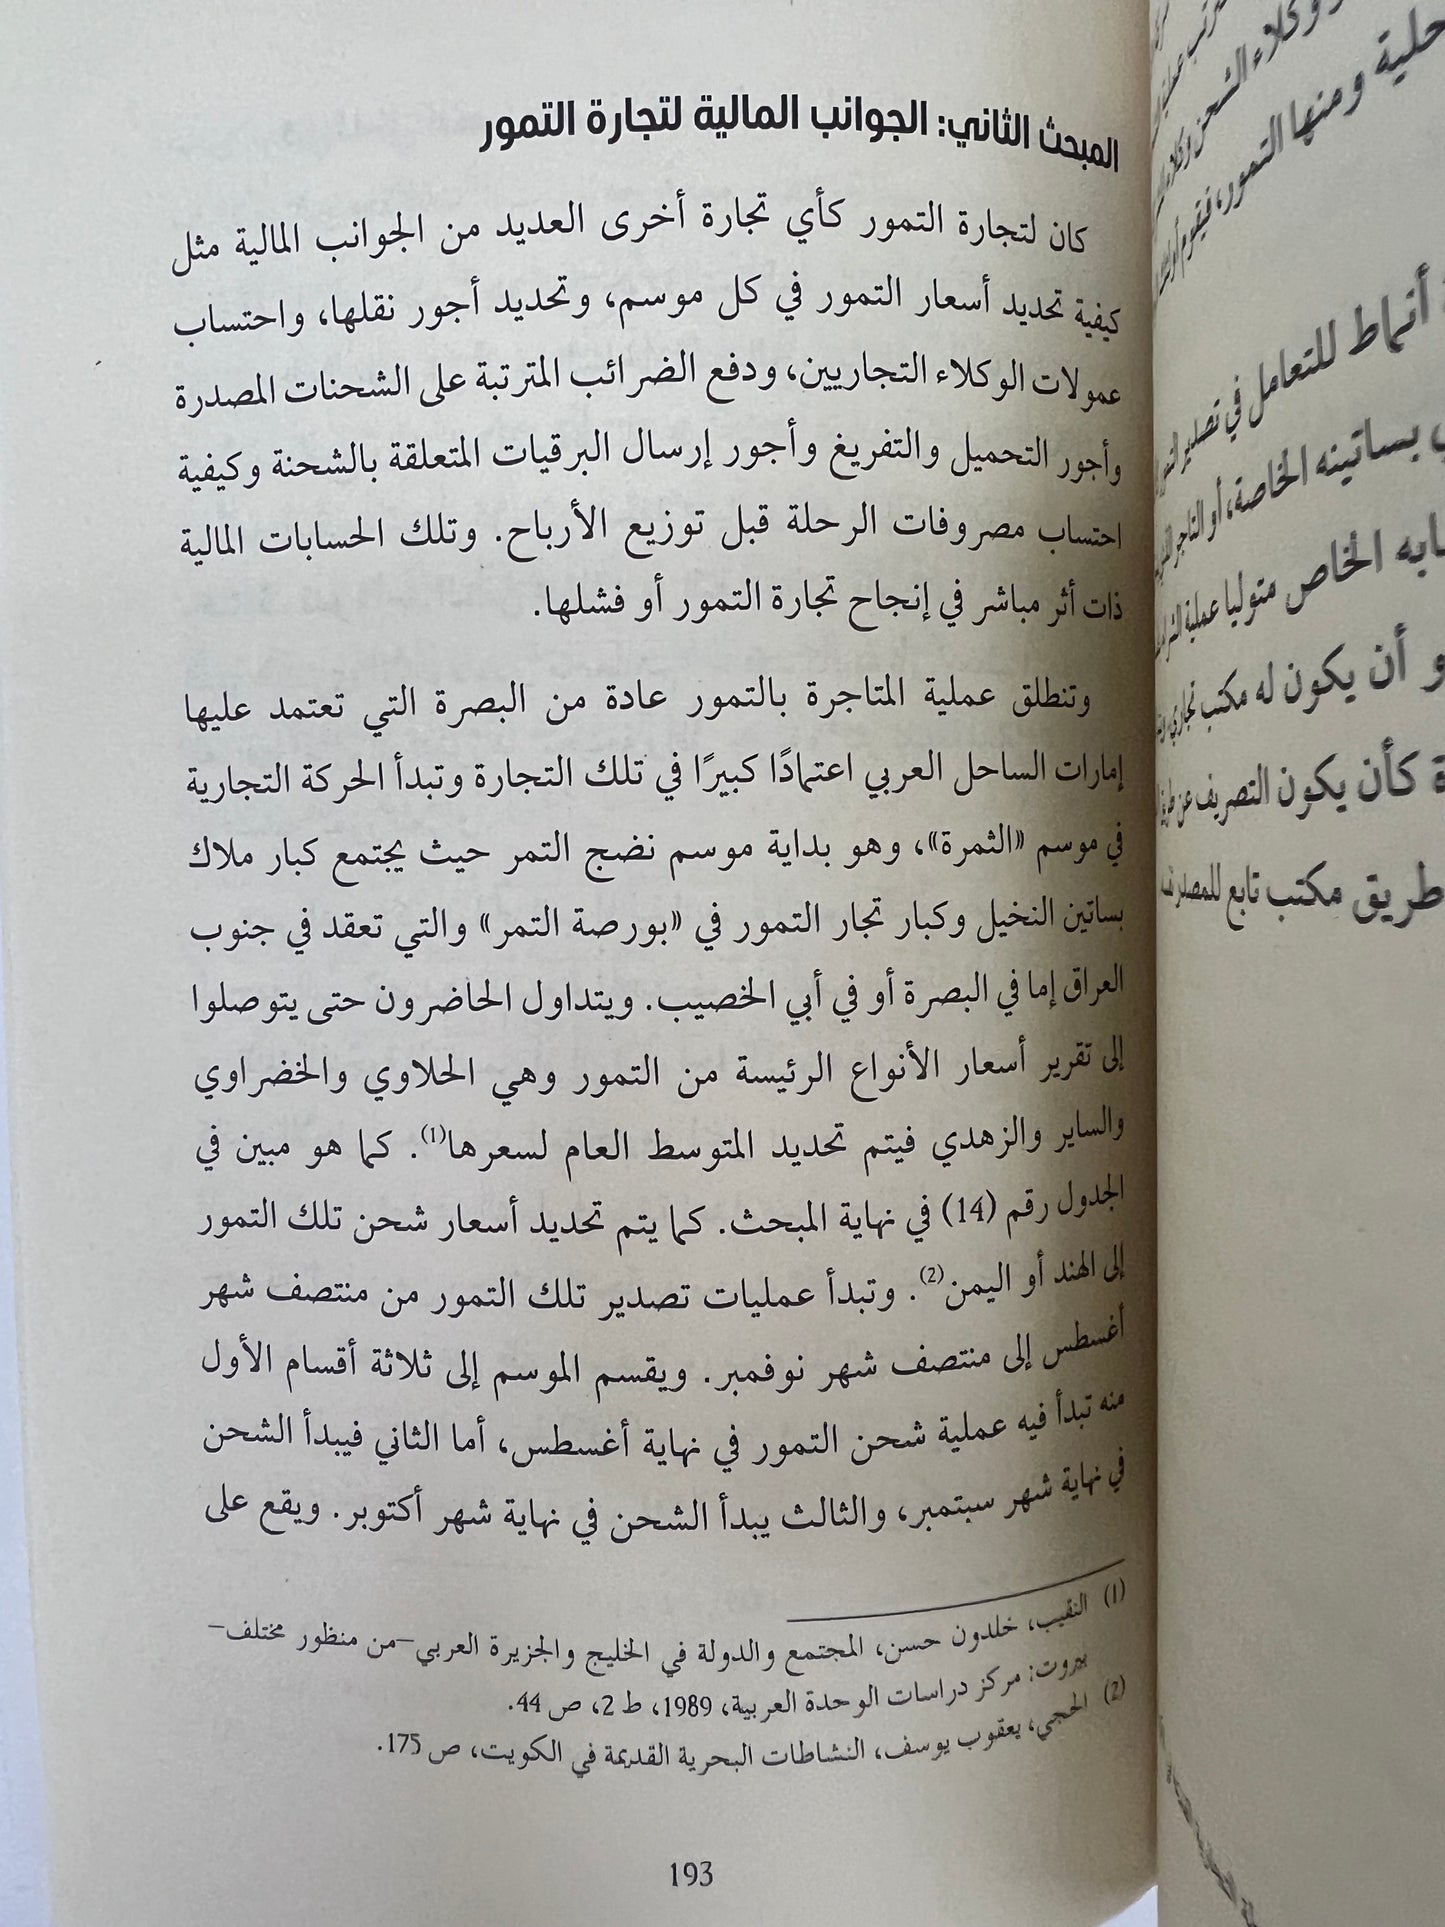 المبحث الثاني: الجوانب المالية لتجارة التمور
كان لتجارة التمور كأي تجارة أخرى العديد من الجوانب المالية مثل
كيفية تحديد أسعار التمور في كل موسم، وتحديد أجور نقلها، واحتساب
عمولات الوكلاء التجاريين، ودفع الضرائب المترتبة على الشحنات المصدرة
وأجور التحميل والتفريغ وأجور إرسال البرقيات المتعلقة بالشحنة وكيفية
احتساب مصروفات الرحلة قبل توزيع الأرباح. وتلك الحسابات المالية
ذات أثر مباشر في إنجاح تجارة التمور أو فشلها.
وتنطلق عملية المتاجرة بالتمور عادة من البصرة التي تعتمد عليها
إمارات الساحل العربي اعتمادًا كبيرًا في تلك التجارة وتبدأ الحركة التجارية
في موسم «الثمرة»، وهو بداية موسم نضج التمر حيث يجتمع كبار ملاك
بساتين النخيل وكبار تجار التمور في «بورصة التمر» والتي تعقد في جنوب
العراق إما في البصرة أو في أبي الخصيب. ويتداول الحاضرون حتى يتوصلوا
إلى تقرير أسعار الأنواع الرئيسة من التمور وهي الحلاوي والخضراوي
والساير والزهدي فيتم تحديد المتوسط العام لسعرها(1). كما هو مبين في
الجدول رقم (14) في نهاية المبحث. كما يتم تحديد أسعار شحن تلك التمور
إلى الهند أو اليمن(2). وتبدأ عمليات تصدير تلك التمور من منتصف شهر
أغسطس إلى منتصف شهر نوفمبر. ويقسم الموسم إلى ثلاثة أقسام الأول
منه تبدأ فيه عملية شحن التمور في نهاية أغسطس، أما الثاني فيبدأ الشحن
في نهاية شهر سبتمبر، والثالث يبدأ الشحن في نهاية شهر أكتوبر. ويقع على
(1) النقيب، خلدون حسن، المجتمع والدولة في الخليج والجزيرة العربي–من منظور مختلف–
بيروت: مركز دراسات الوحدة العربية، 1989، ط 2، ص 44.
(2) الحجي، يعقوب يوسف، النشاطات البحرية القديمة في الكويت، ص 175.
193
وكلاء الشحن
حلية ومنها التمور، فيقوم
أنماط للتعامل في تصدير
بساتينه الخاصة، أو التاجر
الخاص متوليا عملية
و أن يكون له مكتب تجاري
كأن يكون التصريف عن
طريق مكتب تابع للمصدر